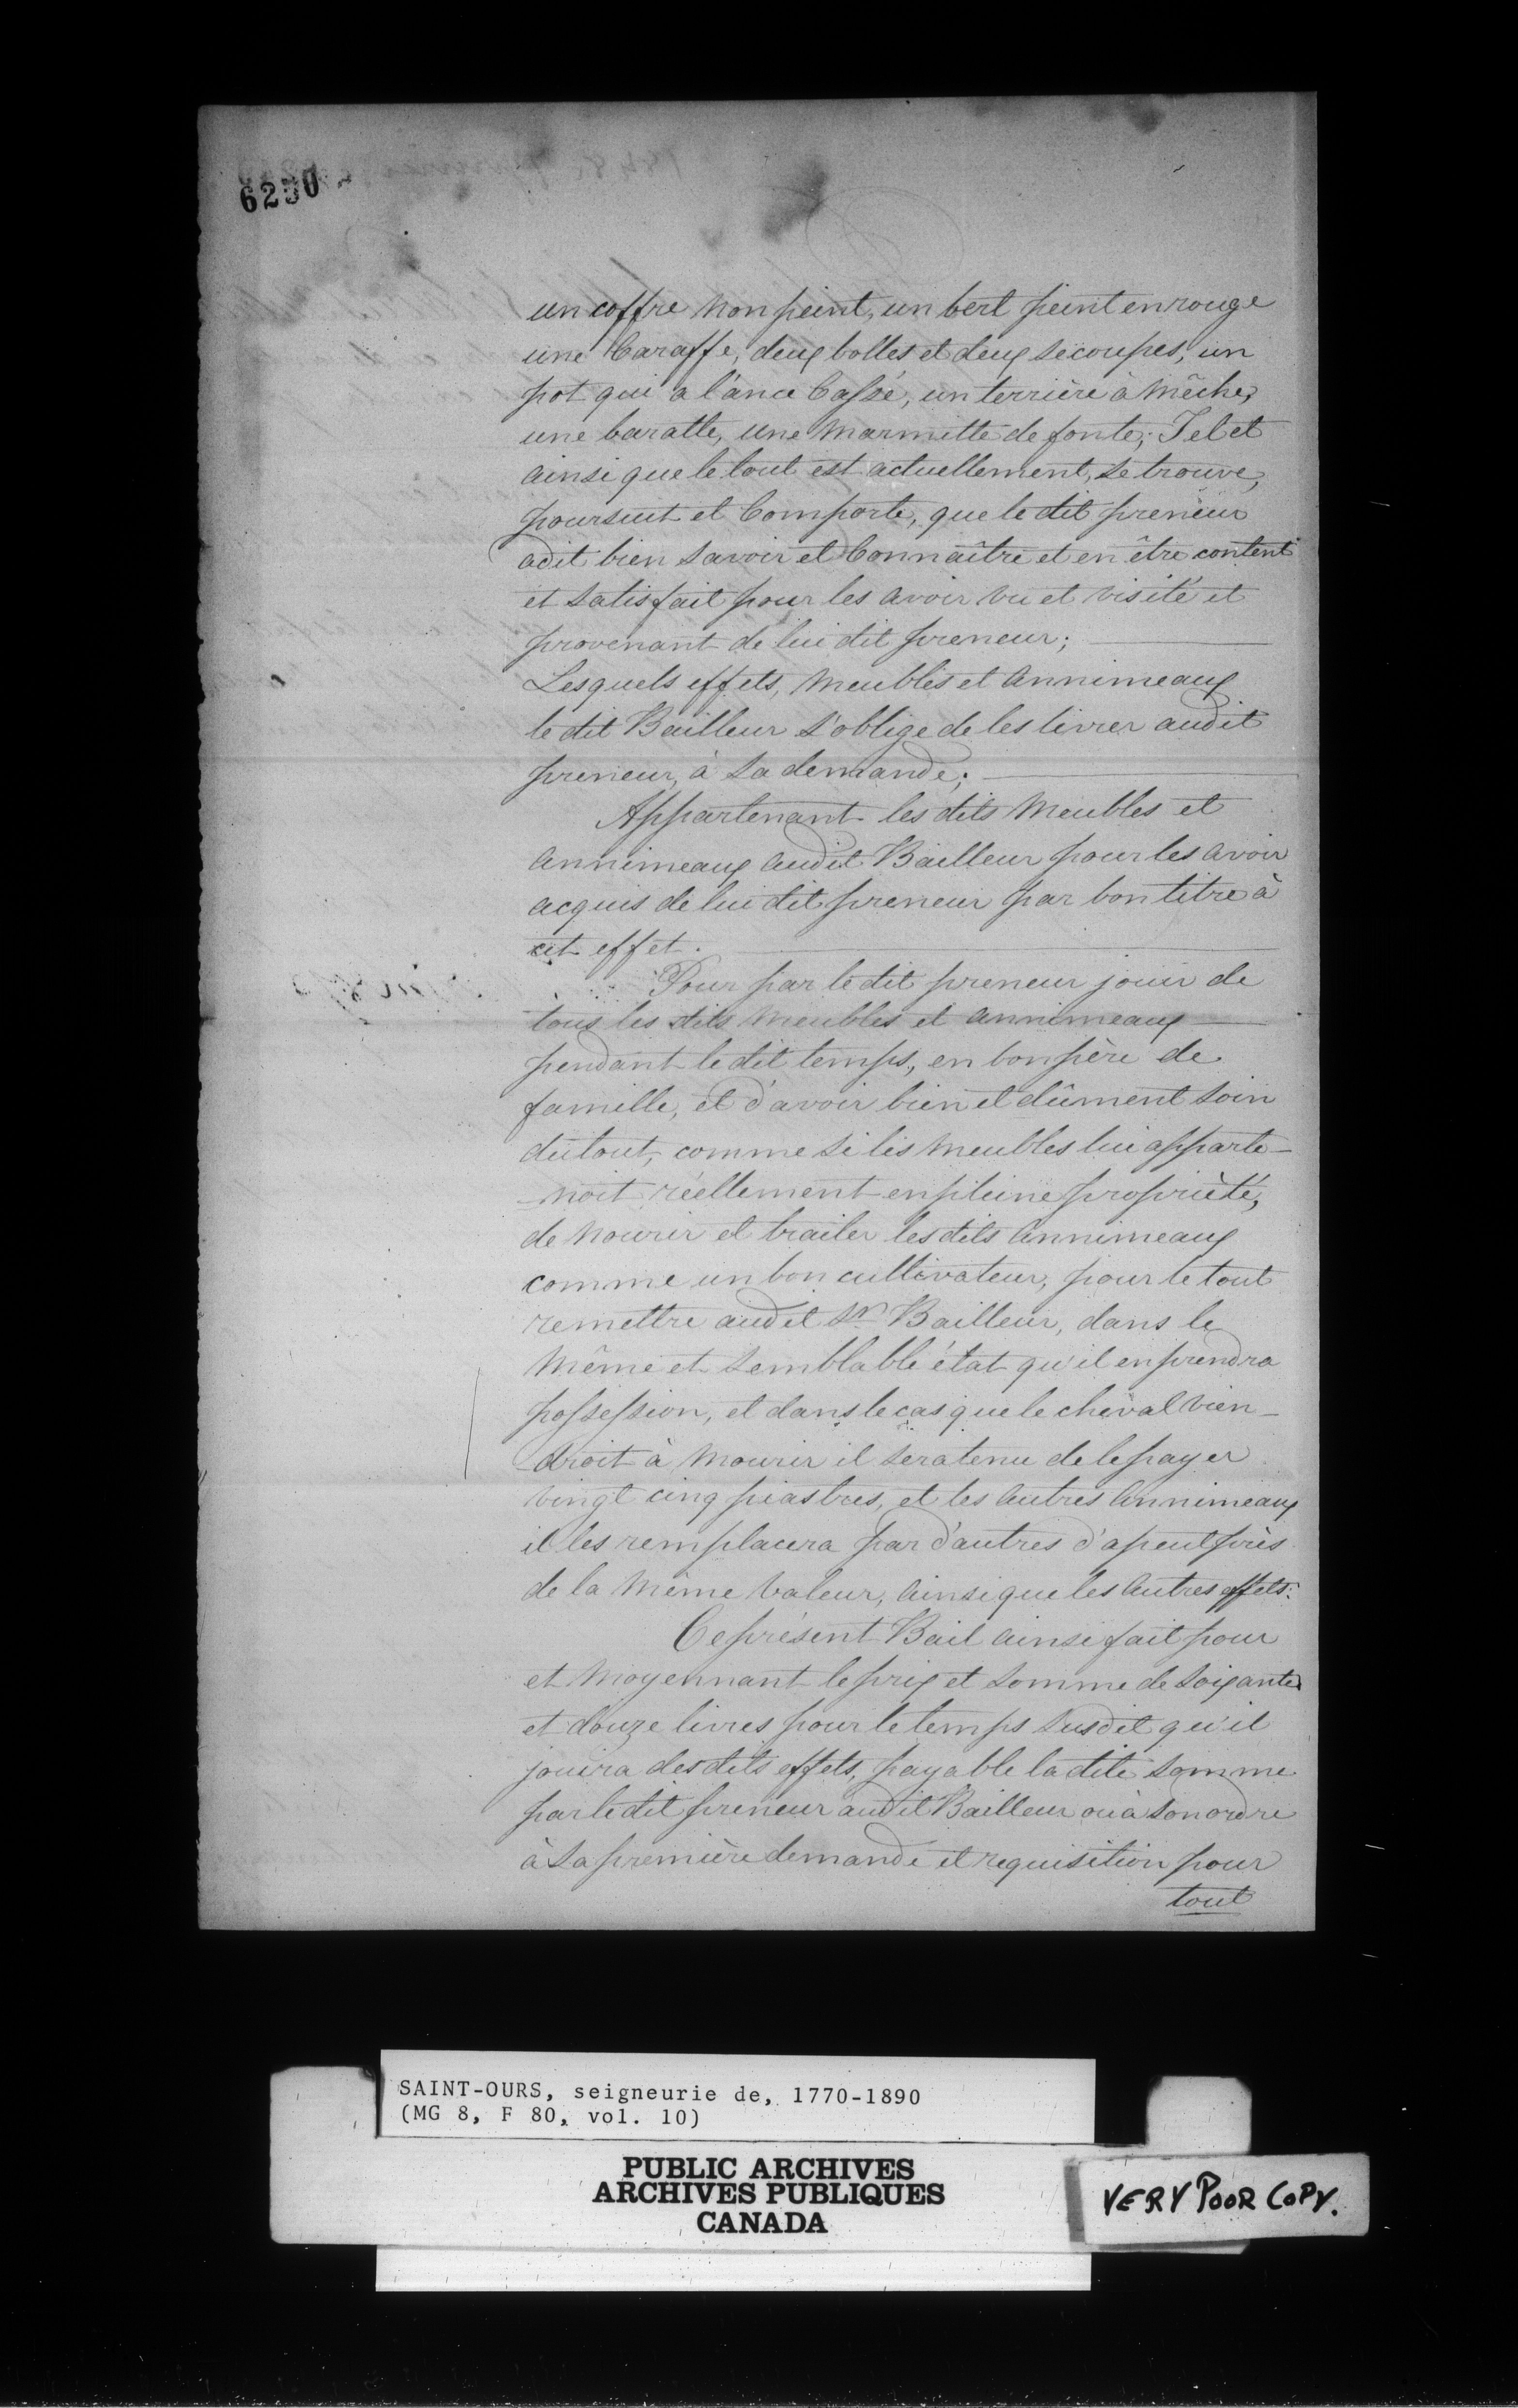 6250
un coffre non peint, un bert peint en rouge
une Caraffe, deux bolles et deux secoupes, un
pot qui a l'ance Cassé, un terrière à mêche,
une baratte, une marmitte de fonte; Tel et
ainsi que le tout est actuellement, se trouve,
poursuit et Comporte, que le dit preneur
a dit bien savoir et Connaître et en être content
et satisfait pour les avoir vu et visité et
provenant de lui dit preneur;
Lesquels effets, meubles et annimeaux
le dit Bailleur s'oblige de les livrer audit
preneur, à sa demande;
Appartenant les dits Meubles et
annimeaux audit Bailleur pour les avoir
acquis de lui dit preneur par bon titre à
cet effet.
Pour par le dit preneur jouir de
tous les dits meubles et annimeaux
pendant le dit temps, en bon père de
famille, et d'avoir bien et dûment soin
du tout, comme si les meubles lui apparte-
-noit réellement en pleine propriété,
de nourir et traiter les dits annimeaux
comme un bon cultivateur, pour le tout
remettre audit Sr Bailleur, dans le
même et semblable état qu'il en prendra
possession, et dans le cas que le cheval vien-
-droit à mourir il sera tenu de le payer
vingt cinq piastres, et les autres annimeaux
il les remplacera par d'autres d'apeutprès
de la même valeur, ainsi que les autres effets.
Ce présent Bail ainsi fait pour
et moyennant le prix et somme de soixante
et douze livres pour le temps susdit qu'il
jouira des dits effets, payable la dite somme
par le dit preneur audit Bailleur ou à son ordre
à sa première demande et requisition pour
tout
SAINT-OURS, seigneurie de, 1770-1890
(MG 8, F 80, vol. 10)
PUBLIC ARCHIVES
ARCHIVES PUBLIQUES
CANADA
VERY POOR COPY.